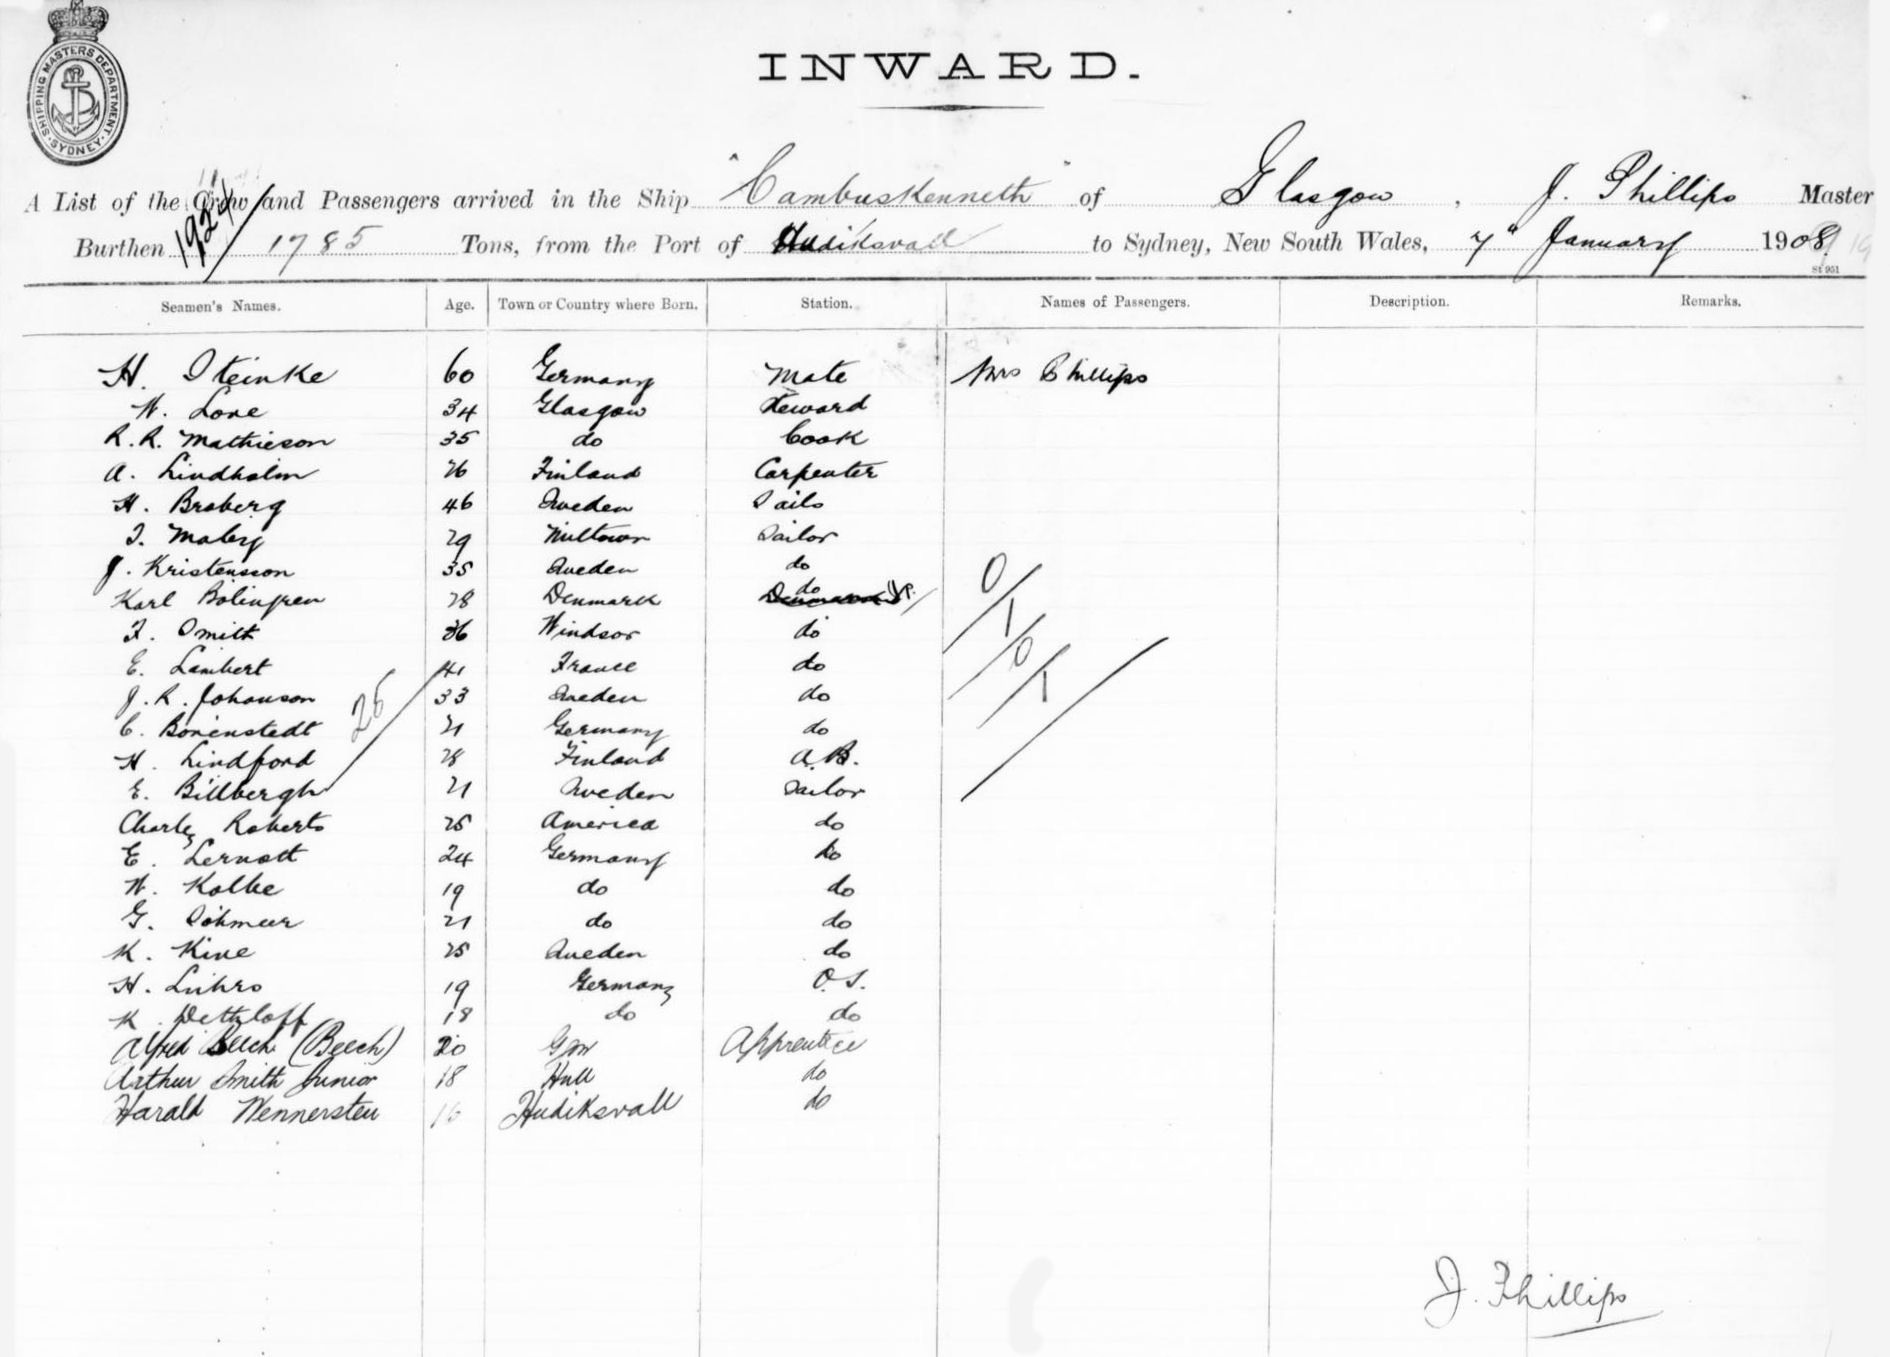 SHIPPING MASTERS DEPARTMENT
SYDNEY
INWARD.
A List of the Crew and Passengers arrived in the Ship "Cambuskenneth" of Glasgow, J. Phillips Master
Burthen 1924 / 1785 Tons, from the Port of Hudiksvall to Sydney, New South Wales, 7" January 1908
St 951
Seamen's Names. Age. Town or Country where Born. Station. Names of Passengers. Description. Remarks.
H. Steinke 60 Germany Mate Mrs Phillips
W. Love 34 Glasgow Steward
R. R. Mathieson 35 do Cook
A. Lindholm 26 Finland Carpenter
H. Broberg 46 Sweden Sails
T. Maby 29 Miltown Sailor
J. Kristensson 35 Sweden do
Karl Bolingren 28 Denmark do
F. Smith 36 Windsor do
E. Lambert 41 France do
J. R. Johanson 33 Sweden do
C. Borienstedt 21 Germany do
H. Lindford 28 Finland A.B.
E. Billbergh 21 Sweden Sailor
Charles Roberts 25 America do
E. Lernott 24 Germany do
W. Kolbe 19 do do
G. Söhmeer 21 do do
K. Kive 25 Sweden do
H. Lührs 19 Germany O.S.
K. Dettzloff 18 do do
Alfred Beech (Beech) 20 Apprentice
Arthur Smith Junior 18 Hull do
Harald Wennersten 16 Hudiksvall do
26
0/1/0/1/
J. Phillips